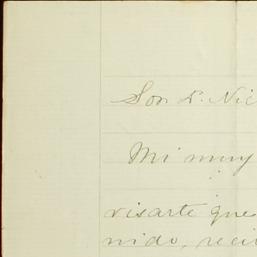 Son D. Nic
Mi muy
visarte que
nido, reci